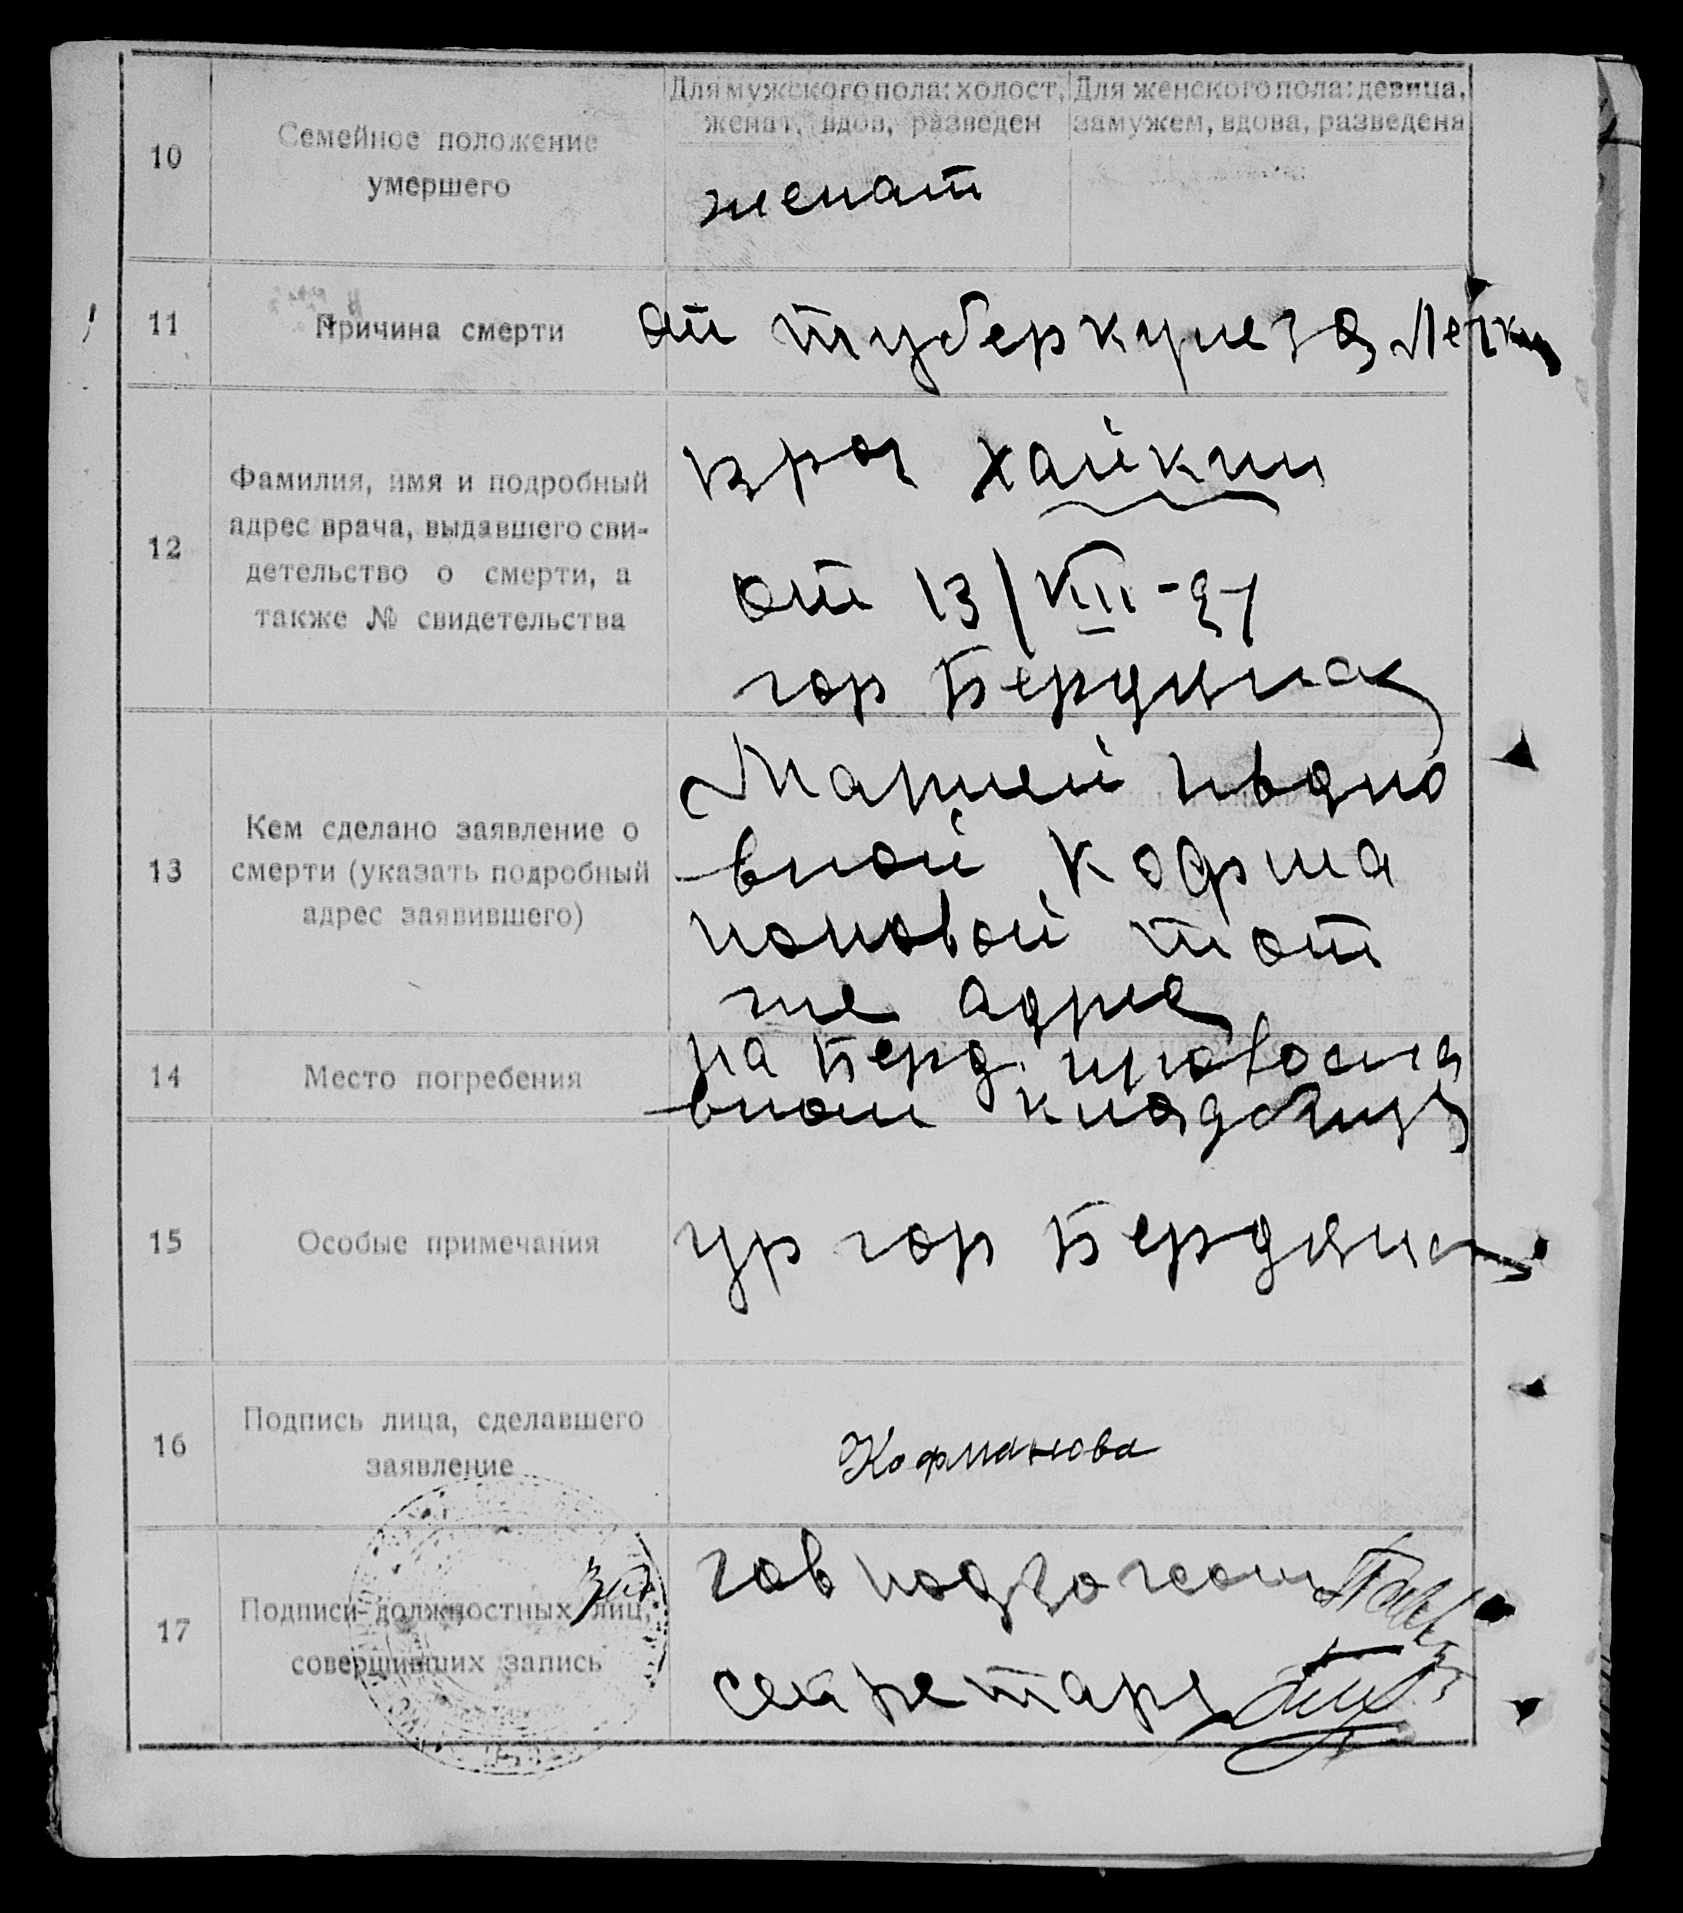 10
Семейное положение
умершего
Для мужского пола: холост,
женат, вдов, разведен
Для женского пола: девица,
замужем, вдова, разведена
женат
11
Причина смерти
от туберкулеза легких
12
Фамилия, имя и подробный
адрес врача, выдавшего сви-
детельство о смерти, а
также № свидетельства
врач Хайкин
от 13/VIII-21
гор Бердянск
13
Кем сделано заявление о
смерти (указать подробный
адрес заявившего)
Марией
вной Кофма
новой тот
же адрес
14
Место погребения
на Берд. правосла
вном кладбище
15
Особые примечания
ур гор Бердянск
16
Подпись лица, сделавшего
заявление
Кофманова
17
Подписи должностных лиц,
совершивших запись
зав
секретарь